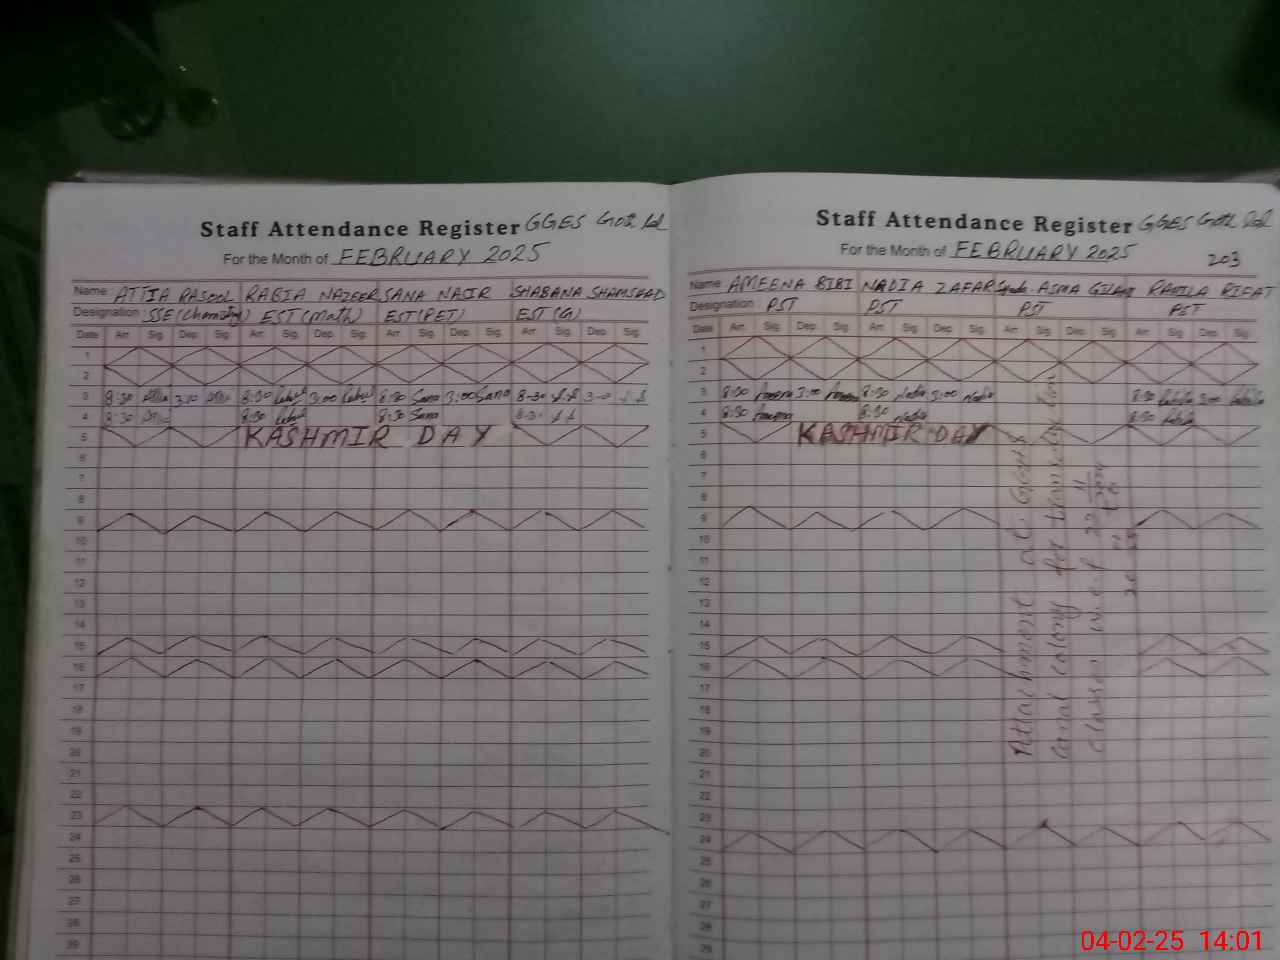 Staff Attendance Register GGES Goth
For the Month of FEBRUARY 2025
Name ATTIA RASOOL RABIA NAZEER SANA NASIR SHABANA SHAMSHAD
Designation SSE(Chemistry) EST(Math) EST(PET) EST(G)
Date Arr. Sig. Dep. Sig. Arr. Sig. Dep. Sig. Arr. Sig. Dep. Sig. Arr. Sig. Dep. Sig.
1
2
3 8:30 3:00 8:30 3:00 8:30 Sana 3:00 Sana 8:30 3:0
4 8:30 8:30 8:30 Sana 8:30
5 KASHMIR DAY
6
7
8
9
10
11
12
13
14
15
16
17
18
19
20
21
22
23
24
25
26
27
28
29
Staff Attendance Register GGES Goth
For the Month of FEBRUARY 2025
203
Name AMEENA BIBI NADIA ZAFAR Syeda ASMA GILANI RAHILA RIFAT
Designation PST PST PST PST
Date Arr. Sig. Dep. Sig. Arr. Sig. Dep. Sig. Arr. Sig. Dep. Sig. Arr. Sig. Dep. Sig.
1
2
3 8:30 3:00 8:30 Nadia 3:00 Nadia 8:30 3:00
4 8:30 8:30 Nadia 8:30
5 KASHMIR DAY
6
7
8
9
10
11
12
13
14
15
16
17
18
19
20
21
22
23
24
25
26
27
28
29
Attachment at
canal colony for
classes w.e.f
04-02-25 14:01